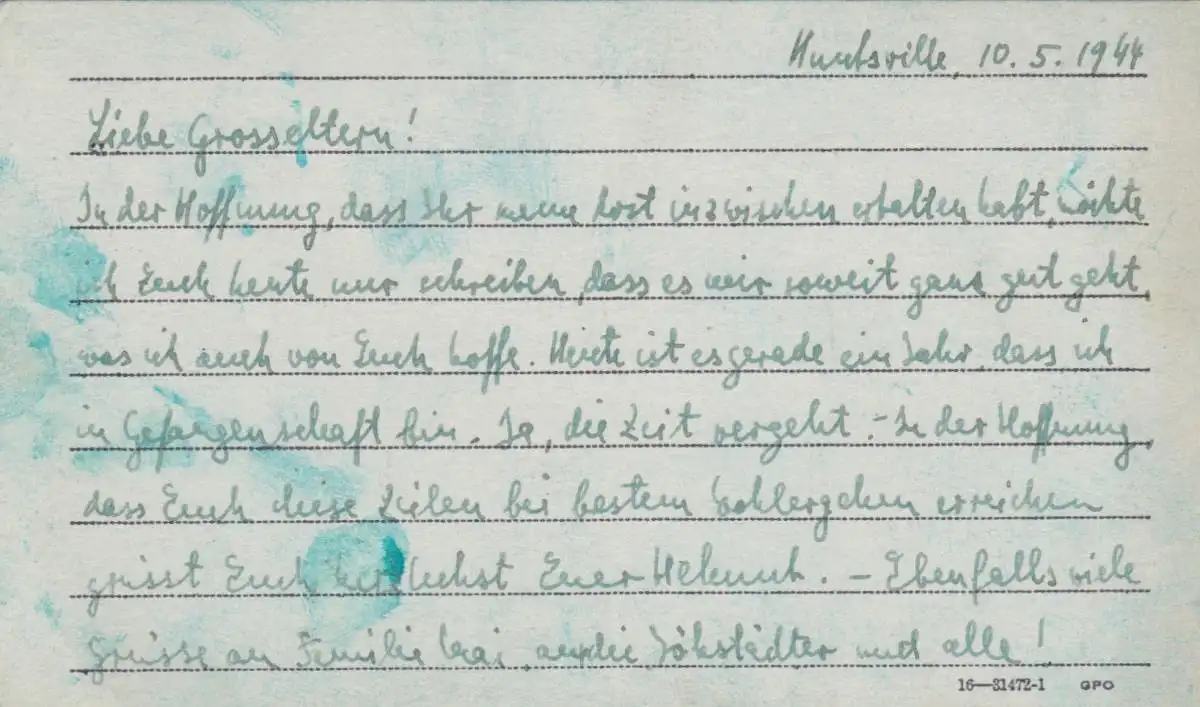 Huntsville, 10.5.1944
Liebe Grosseltern!
In der Hoffnung, dass Ihr meine Post inzwischen erhalten habt, möchte
ich Euch heute nur schreiben, dass es mir soweit ganz gut geht,
was ich auch von Euch hoffe. Heute ist es gerade ein Jahr, dass ich
in Gefangenschaft bin. Ja, die Zeit vergeht. - In der Hoffnung,
dass Euch diese Zeilen bei bestem Wohlergehen erreichen
grüsst Euch herzlichst Euer Helmut. - Ebenfalls viele
Grüsse an Familie an die Jöhstädter und alle!
16—31472-1 GPO